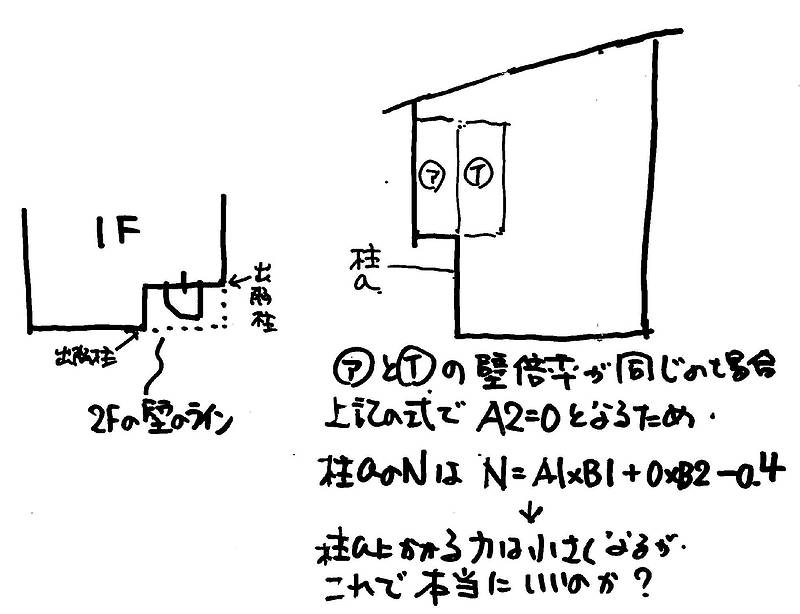 1F
出隅柱
出隅柱
2Fの壁のライン
ア
イ
柱
a
アとイの壁倍率が同じの場合
上記の式で A2=0となるため.
柱aのNは N=A1×B1+0×B2-0.4
↓
柱aにかかる力は小さくなるが.
これで本当にいいのか?